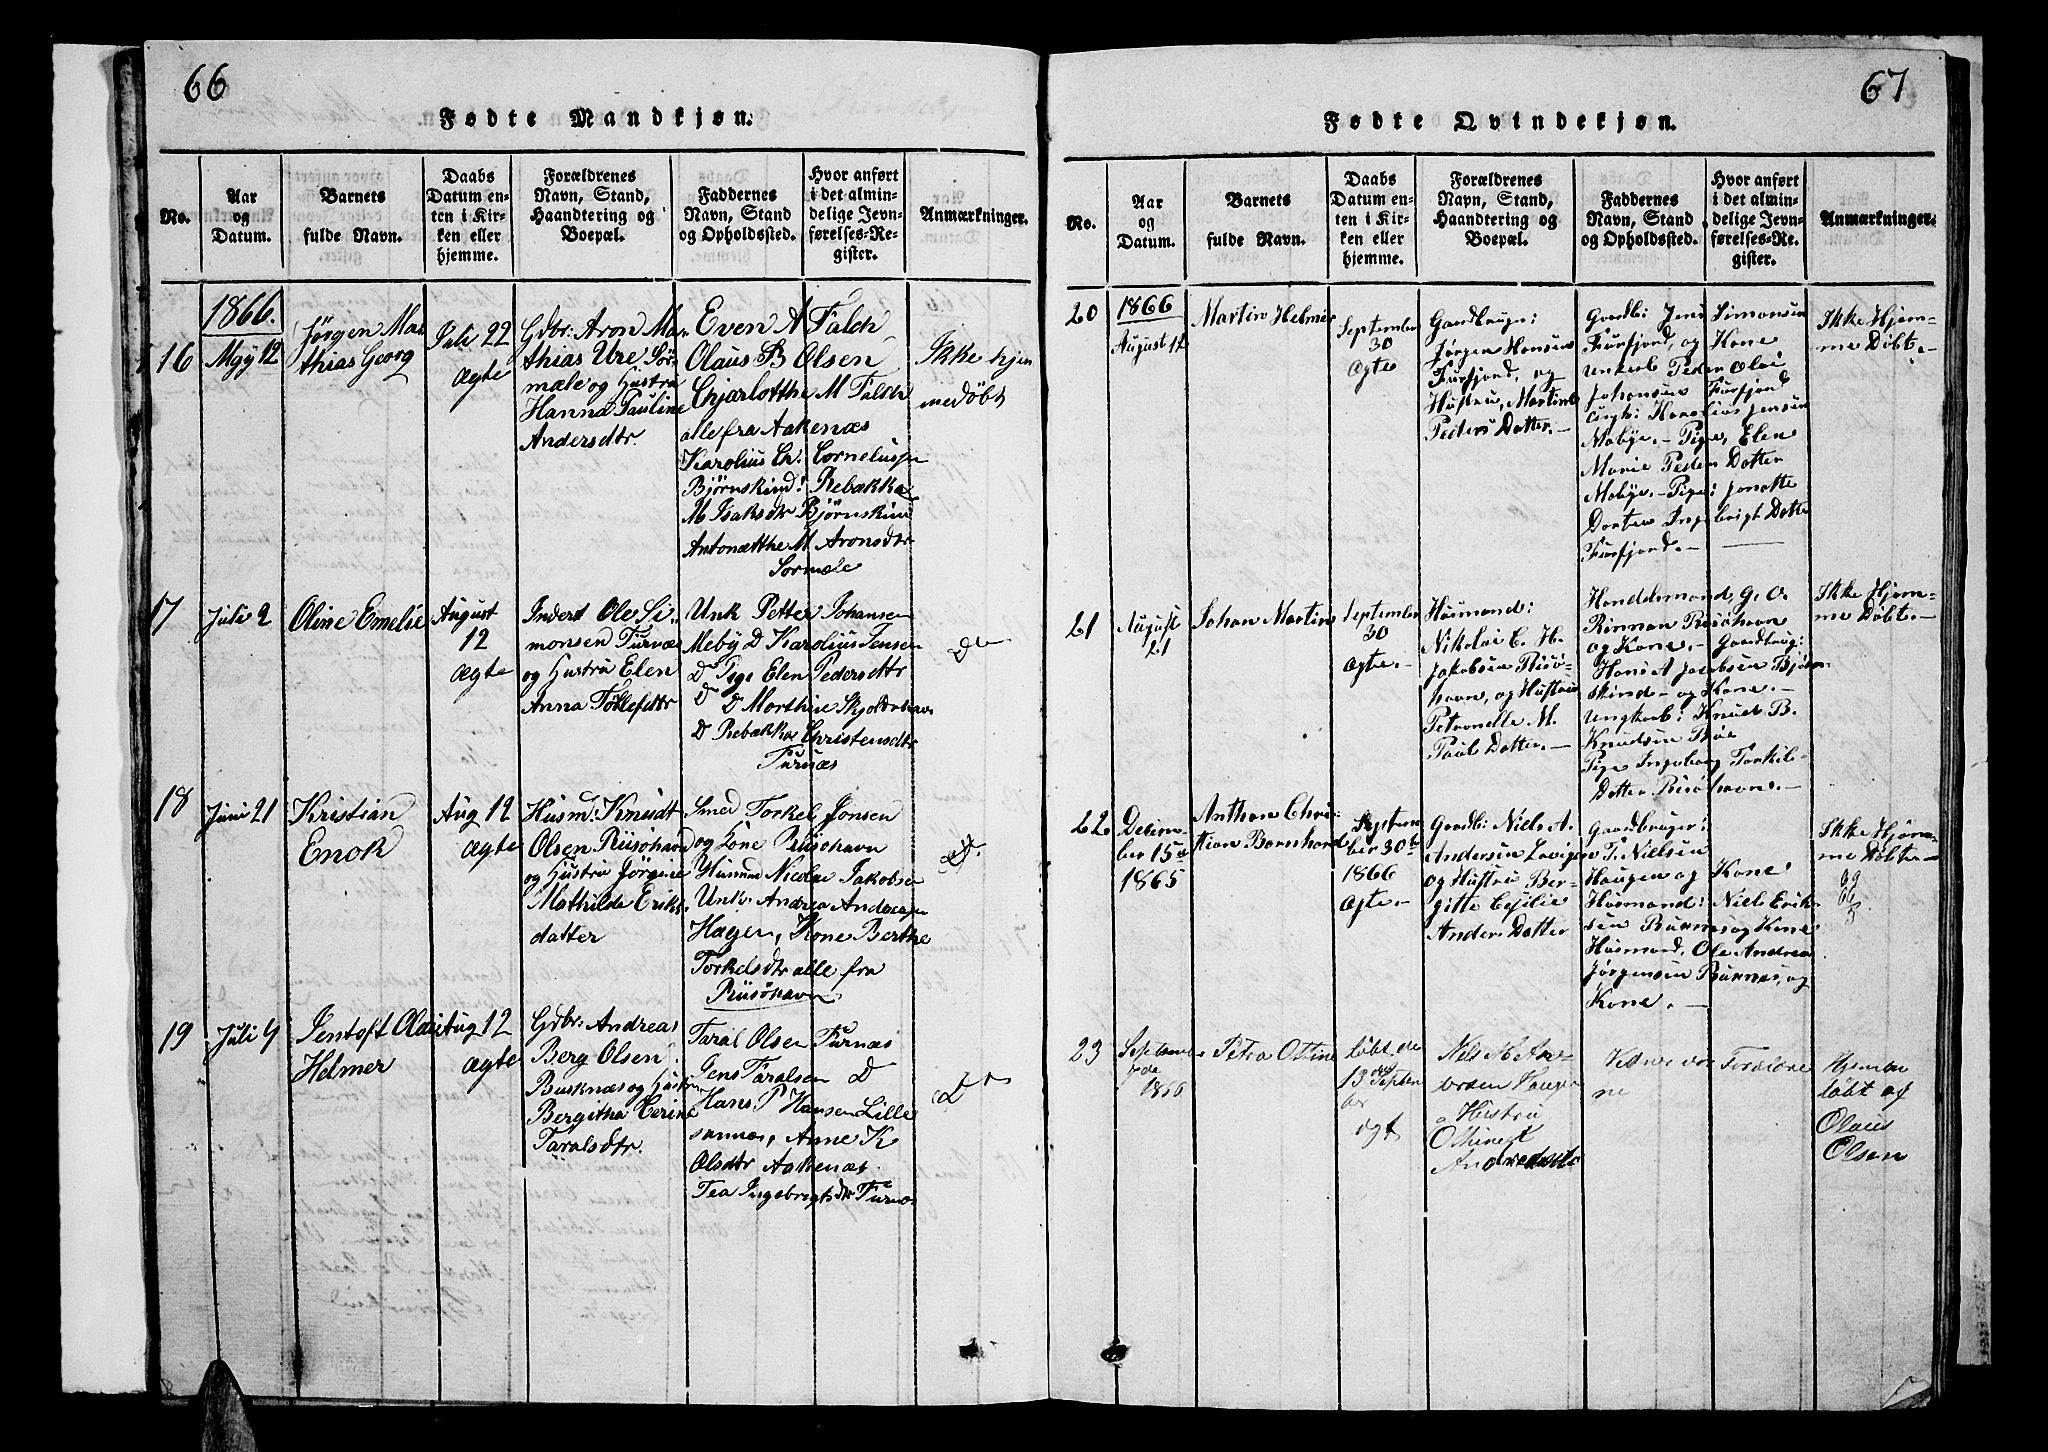 66
Fødte Mandkjøn.
No.
Aar
og
Datum.
Barnets
fulde Navn.
Daabs
Datum en-
ten i Kir-
ken eller
hjemme.
Forældrenes
Navn, Stand,
Haandtering og
Boepæl.
Faddernes
Navn, Stand
og Opholdssted.
Hvor anført
i det almin-
delige Jevn-
førelses-Re-
gister.
Anmærkninger.
1866.
16
May 12
Jørgen Ma-
thias Georg
Juli 22
ægte
Gdbr: Aron Ma-
thias Ure Sør-
mæle og Hustru
Hanna Pauline
Andersdtr.
Even A Falch
Olaus B Olsen
Chjarlotthe M Falch
alle fra Aakenæs
Karolius Ch. Corneliusen
Bjørnskind: Rebækka
M Isaksdtr Bjørnskind
Antonætthe M Aronsdtr
Sormæle
Ikke hjem
medøbt
17
Juli 2
Oline Emelie
August
12
ægte
Inderst Ole Si-
monsen Furnæs
og Hustru Elen
Anna Tollefsdtr
Unk Petter Johansen
Meby D Karolius Jensen
D Pige Elen Pedersdtr
D D Morthine Skjoldehavn
D Rebækka Christensdtr
Furnæs
D
18
Juni 21
Kristian
Enok
Aug 12
ægte
Husm: Knudt
Olsen Riisøhavn
og Hustru Jørgine
Mathilde Eriks-
datter
Smed Torkel Jonsen
og Kone Riisøhavn
Husmnd Nicolai Jakobsen
Unk: Andrea Andersen
Hagen, Kone Berthe
Torkelsdtr alle fra
Riisøhavn
D
19
Juli 9
Jentoft Olai
Helmer
Aug 12
ægte
Gdbr: Andreas
Berg Olsen
Busknæs og Hustru
Bergitha Cerine
Taralsdtr.
Taral Olsen Furnæs
Jens Taralsen D
Hans P Hansen Lille
sannes, Anne K
Olsdtr Aakenæs
Tea Ingebrigtsdtr Furnæs
D
67
Fødte Qvindekjøn.
No.
Aar
og
Datum.
Barnets
fulde Navn.
Daabs
Datum en-
ten i Kir-
ken eller
hjemme.
Forældrenes
Navn, Stand,
Haandtering og
Boepæl.
Faddernes
Navn, Stand
og Opholdssted.
Hvor anført
i det almin-
delige Jevn-
førelses-Re-
gister.
Anmærkninger.
20
1866
August 12
Martin Helmer
September
30
ægte
Gaardbruger:
Jørgen Hansen
Furfjord, og
Hustru, Martine
Peders Datter.-
Gaardb: Jens Simonsen
Furfjord, og Kone
Unkarl Peder Olai
Johansen Furfjord
Ungk: Karolius Jensen
Mebye.- Pige, Elen
Marie Peder Datter
Mebye.- Pige: Jonette
Dortea Ingebrigt Datter
Furfjord.-
Ikke Hjem-
me Døbt.-
21
August
21
Johan Martin
September
30
ægte.-
Husmand:
Nikolai C. H.
Jakobsen Risø-
havn, og Hustru
Petronelle M.
Paul Datter.-
Handelsmand, G. O.
Rinman Risøhavn
og Kone.- Gaardbrug:
Hans A Jacobsen Bjørn-
skind- og Kone.-
Ungkarl: Knud B.
Knudsen Risø
Pige Ingeborg Torkils-
Datter Risøhavn.-
Ikke Hjem-
me Døbt.-
22
Decem-
ber 15de
1865
Anthon Chri-
stian Bernhard
Septem
ber 30te
1866
ægte.-
Gaardb: Niels A.
Andersen Lovigen
og Hustru Ber-
gitte Cesilie
Anders Datter
Gaardbruger:
T. Nielsen
Haugen og Kone
Husmand: Niels Erik-
sen Buknes og Kone
Husmand, Ole Andreas
Jørgensen Buknes, og
Kone.-
Ikke Hjem-
me Døbt.-
23
Septembr
7de
1866
Petra Othine
døbt den
13 Septem
ber
ægte
Nils M An-
dersen Haugen
Hustru
Othine
Andersdatter
Vidner var Forældre
ne
Hjemme
døbt af
Olaus
Olsen